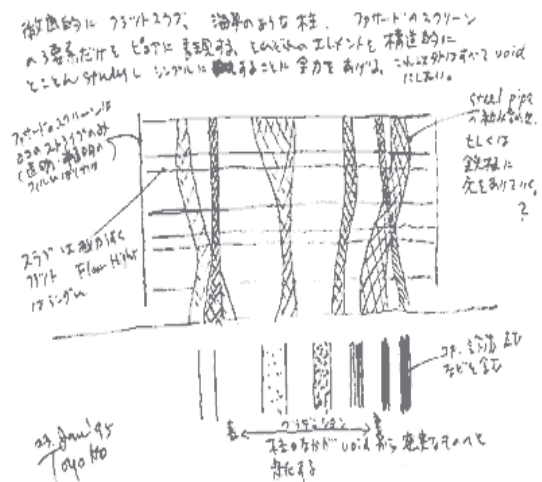 徹底的に フラットスラブ、海草のような柱、ファサードのスクリーン
の3要素だけを ピュアに表現する、それぞれのエレメントを 構造的に
とことん studyし シンプルにすることに 全力をあげる。これ以外はすべて void
にしたい。
ファサードのスクリーンは
横のストライプのみ
透明、半透明の
フィルム
スラブは
フラット Floor Height
はランダム
steel pipe
もしくは
鉄柱に
穴をあけていく。
?
コア、設備
などを含む
グラデーション
柱のなかが void から 充実なものへと
変化する
24. Jan '95
Toyo Ito